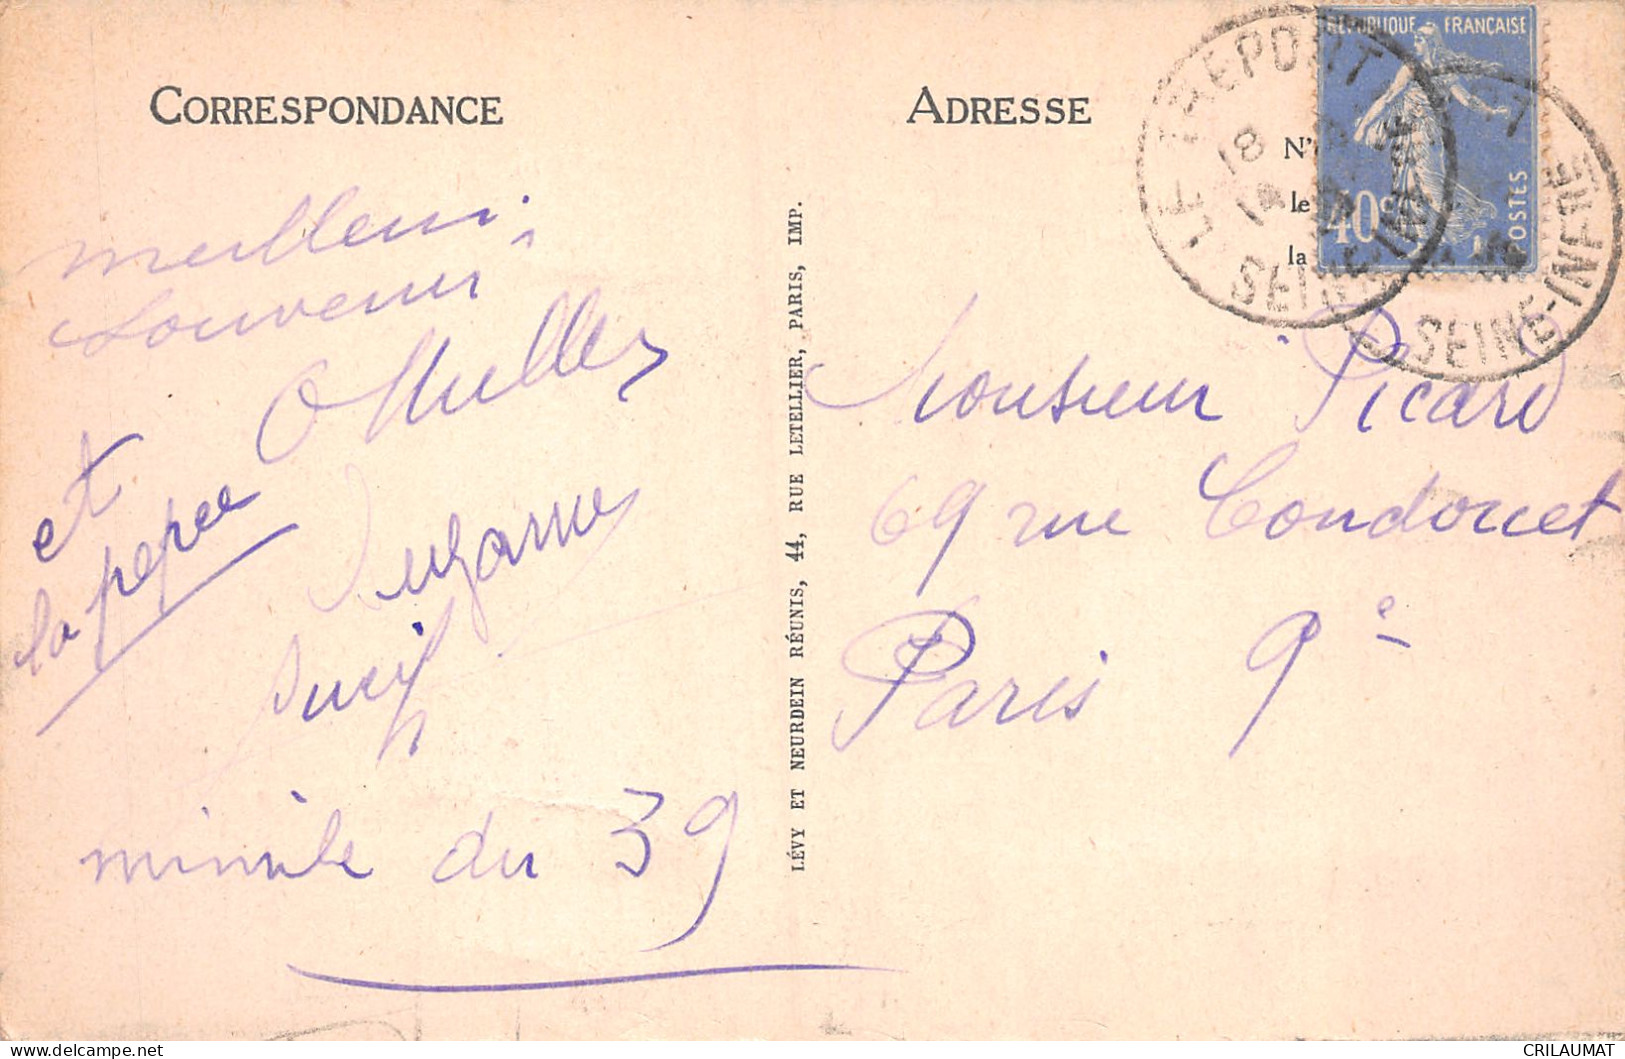 CORRESPONDANCE
meilleurs
souvenirs
et
la pepee
Suzanne
du 39
LÉVY ET NEURDEIN RÉUNIS, 44, RUE LETELLIER, PARIS, IMP.
ADRESSE
N'
le
la
REPUBLIQUE FRANÇAISE
40c
POSTES
LE TREPORT
18
SEINE-INFRE
SEINE-INFRE
Monsieur Picard
69 rue Condorcet
Paris 9e
CRILAUMAT